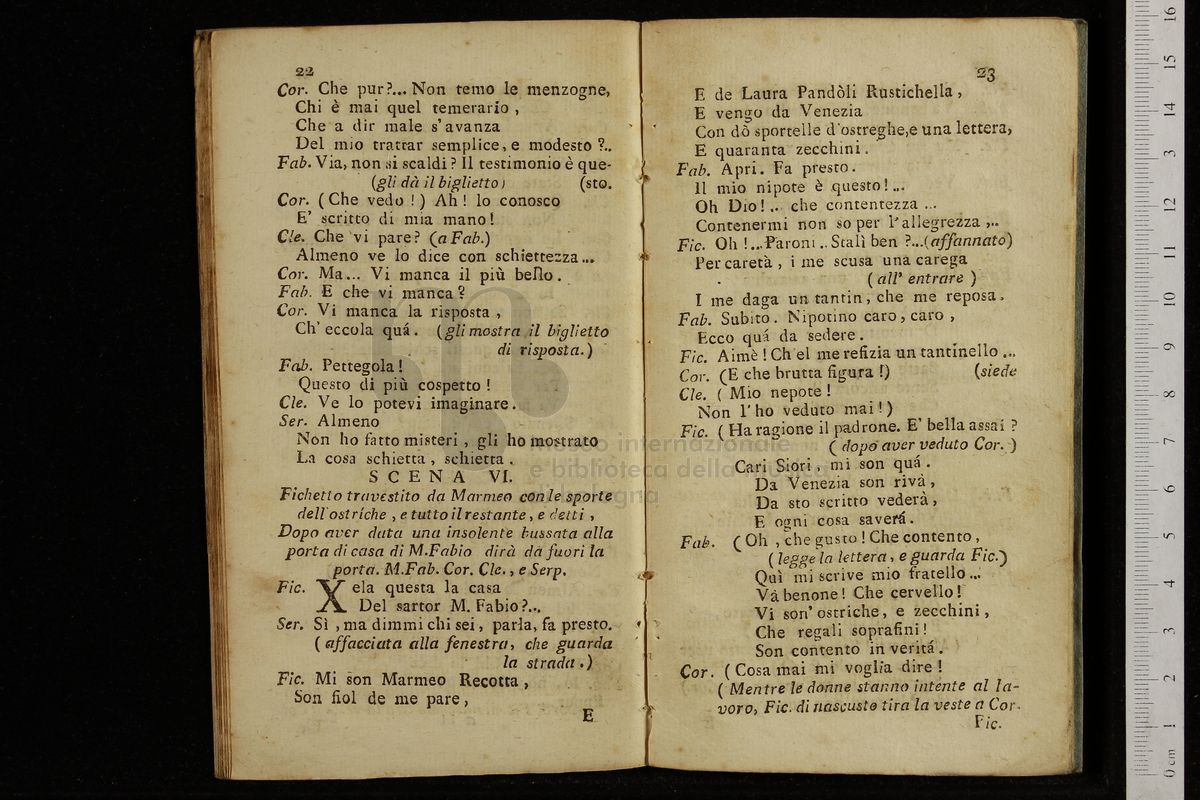 22
Cor. Che pur?... Non temo le menzogne,
Chi è mai quel temerario ,
Che a dir male s'avanza
Del mio trattar semplice, e modesto ?..
Fab. Via, non si scaldi ? Il testimonio è que-
(gli dà il biglietto) (sto.
Cor. ( Che vedo ! ) Ah ! lo conosco
E' scritto di mia mano !
Cle. Che vi pare? (a Fab.)
Almeno ve lo dice con schiettezza...
Cor. Ma... Vi manca il più bello.
Fab. E che vi manca ?
Cor. Vi manca la risposta ,
Ch' eccola quá. (gli mostra il biglietto
di risposta.)
Fab. Pettegola !
Questo di più cospetto !
Cle. Ve lo potevi imaginare.
Ser. Almeno
Non ho fatto misteri , gli ho mostrato
La cosa schietta , schietta .
SCENA VI.
Fichetto travestito da Marmeo con le sporte
dell' ostriche , e tutto il restante , e detti ,
Dopo aver data una insolente bussata alla
porta di casa di M.Fabio dirà da fuori la
porta. M.Fab. Cor. Cle. , e Serp.
Fic. Xela questa la casa
Del sartor M. Fabio?...
Ser. Sì , ma dimmi chi sei , parla, fa presto.
( affacciata alla fenestra, che guarda
la strada .)
Fic. Mi son Marmeo Recotta ,
Son fiol de me pare ,
E
23
E de Laura Pandòli Rustichella ,
E vengo da Venezia
Con dò sportelle d'ostreghe,e una lettera,
E quaranta zecchini .
Fab. Apri. Fa presto.
Il mio nipote è questo !...
Oh Dio !... che contentezza ...
Contenermi non so per l'allegrezza ...
Fic. Oh !... Paroni .. Stali ben ?...(affannato)
Per caretà , i me scusa una carega
( all' entrare )
I me daga un tantin, che me reposa.
Fab. Subito. Nipotino caro, caro ,
Ecco quá da sedere.
Fic. Aimè ! Ch' el me refizia un tantinello ...
Cor. (E che brutta figura !) (siede
Cle. ( Mio nepote !
Non l' ho veduto mai ! )
Fic. ( Ha ragione il padrone. E' bella assai ?
( dopo aver veduto Cor. )
Cari Siori , mi son quá .
Da Venezia son rivà ,
Da sto scritto vederà ,
E ogni cosa saverá.
Fab. ( Oh , che gusto ! Che contento ,
( legge la lettera , e guarda Fic.)
Quì mi scrive mio fratello ...
Và benone ! Che cervello !
Vi son' ostriche , e zecchini ,
Che regali soprafini !
Son contento in verità .
Cor. ( Cosa mai mi voglia dire !
( Mentre le donne stanno intente al la-
voro, Fic. di nascusto tira la veste a Cor.
Fic.
museo internazionale
e biblioteca della musica
di bologna
0 cm 1 2 3 4 5 6 7 8 9 10 11 12 13 14 15 16